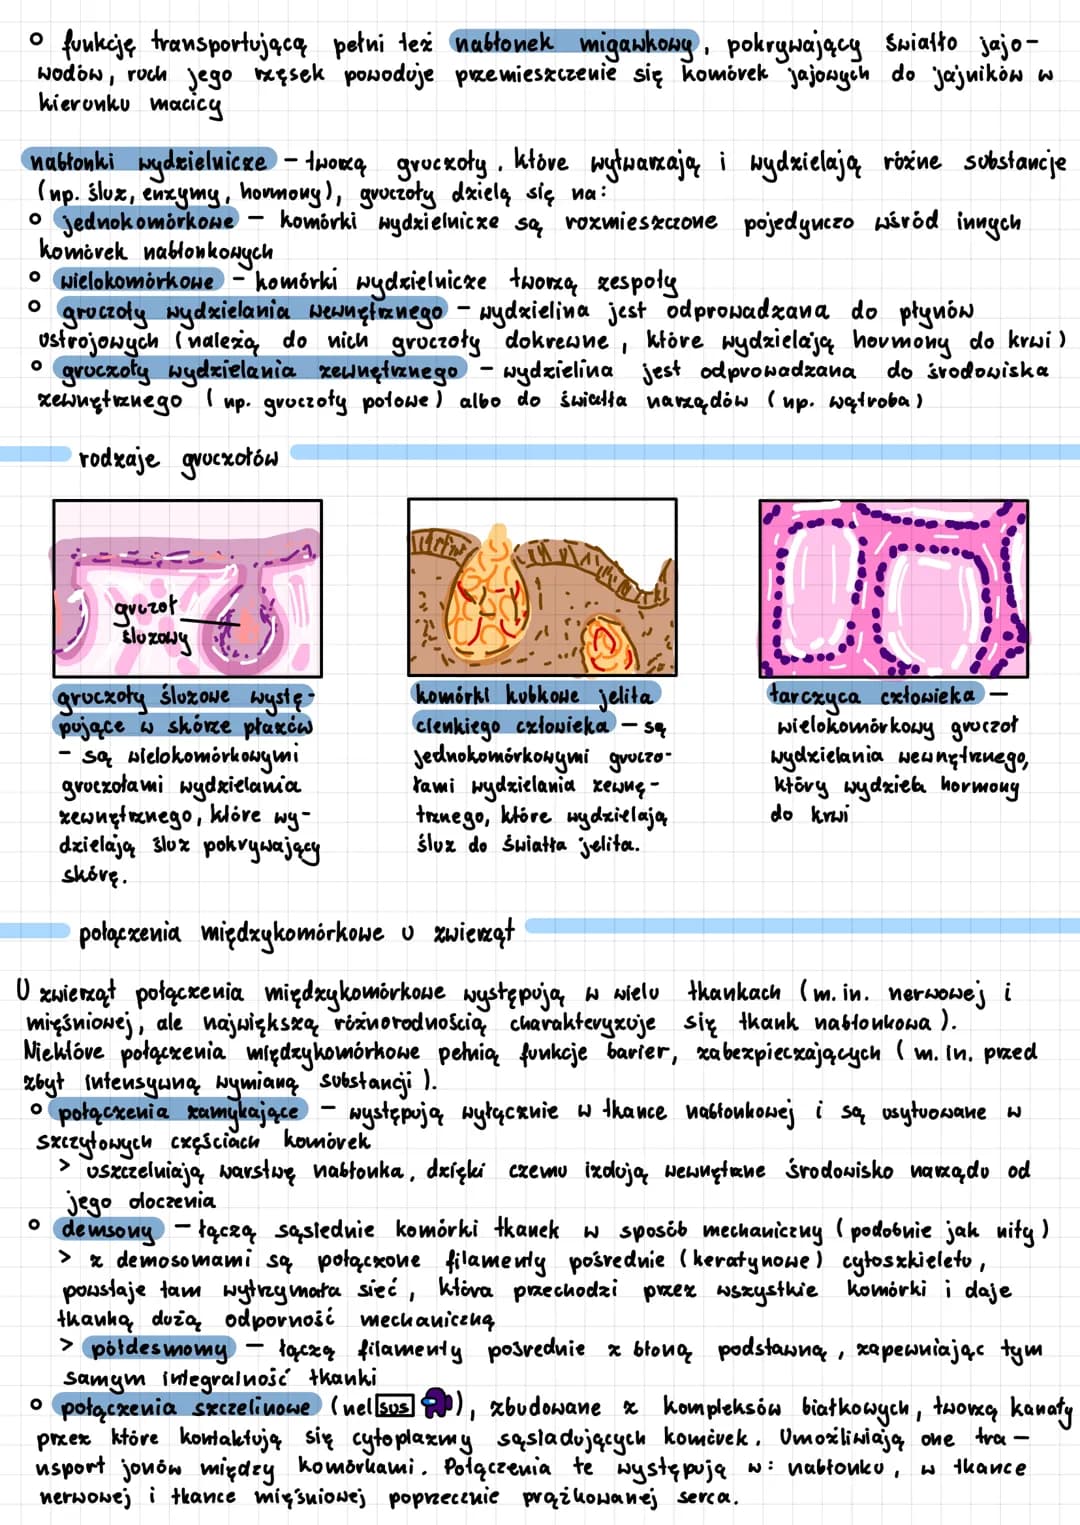 funkcję transportującą pełni też nabłonek migawkowy, pokrywający światło jajo-
wodów, ruch jego rzęsek powoduje przemieszczenie się komórek jajowych do jajników w
kierunku macicy
nabłonki wydzielnicze - tworzą gruczoły, które wytwarzają i wydzielają różne substancje
(np. śluz, enzymy, hormony), gruczoły dzielą się na:
jednokomórkowe - komórki wydzielnicze są rozmieszczone pojedynczo wśród innych
komórek nabłonkowych
wielokomórkowe - komórki wydzielnicze tworzą zespoły
gruczoły wydzielania wewnętrznego - wydzielina jest odprowadzana do płynów
ustrojowych (należą do nich gruczoły dokrewne, które wydzielają hormony do krwi)
gruczoły wydzielania zewnętrznego - wydzielina jest odprowadzana do środowiska
zewnętrznego (np. gruczoły potowe) albo do światła narządów (np. wątroba)
rodzaje gruczołów
gruczoł
śluzowy
gruczoły śluzowe wystę-
pujące w skórze płazów
- są wielokomórkowymi
gruczołami wydzielania
zewnętrznego, które wy-
dzielają śluz pokrywający
skórę.
komórki kubkowe jelita
cienkiego człowieka - są
jednokomórkowymi gruczo-
łami wydzielania zewnę-
trznego, które wydzielają
śluz do światła jelita.
tarczyca człowieka -
wielokomórkowy gruczoł
wydzielania wewnętrznego,
który wydziela hormony
do krwi
połączenia międzykomórkowe u zwierząt
U zwierząt połączenia międzykomórkowe występują w wielu tkankach (m. in. nerwowej i
mięśniowej, ale największą różnorodnością charakteryzuje się tkank nabłonkowa).
Niektóre połączenia międzykomórkowe pełnią funkcje barier, zabezpieczających (m. in. przed
zbyt intensywną wymianą substancji).
połączenia zamykające - występują wyłącznie w tkance nabłonkowej i są usytuowane w
szczytowych częściach komórek
> uszczelniają warstwę nabłonka, dzięki czemu izolują wewnętrzne środowisko narządu od
jego otoczenia
demsony - łączą sąsiednie komórki tkanek w sposób mechaniczny (podobnie jak nity)
> z demosomami są połączone filamenty pośrednie (keratynowe) cytoszkieletu,
powstaje tam wytrzymała sieć, która przechodzi przez wszystkie komórki i daje
tkanką dużą odporność mechaniczną
> półdesmomy - łączą filamenty pośrednie z błoną podstawną, zapewniając tym
samym integralność tkanki
połączenia szczelinowe (nelsus), zbudowane z kompleksów białkowych, tworzą kanały
przez które kontaktują się cytoplazmy sąsiadujących komórek. Umożliwiają one tra-
nsport jonów między komórkami. Połączenia te występują w: nabłonku, w tkance
nerwowej i tkance mięśniowej poprzecznie prążkowanej serca.